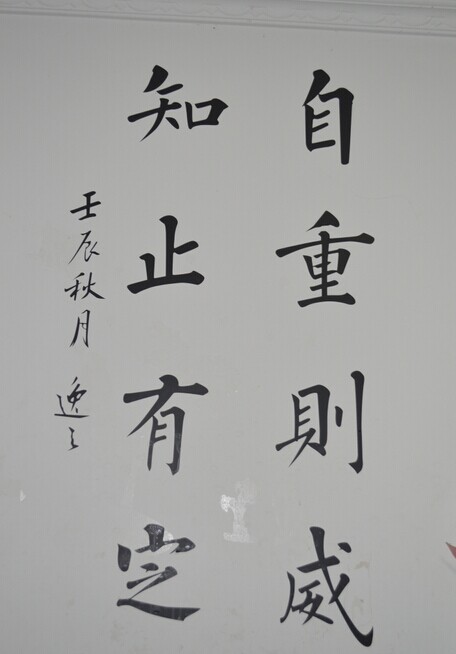 自重則威
知止有定
壬辰秋月 逸之